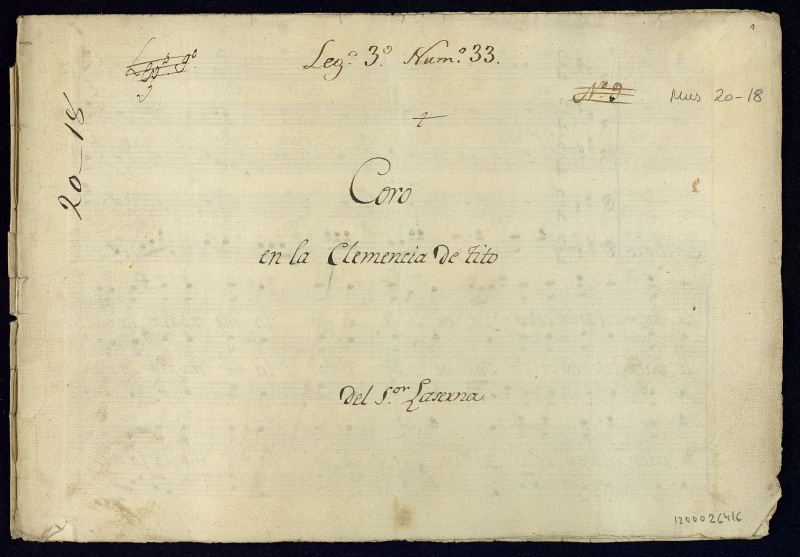 Leg.º 3.º Num.º 33.
1
N.º 9
Mus 20-18
20-18
+
Coro
en la Clemencia de tito
del S.or Laserna
1200026416